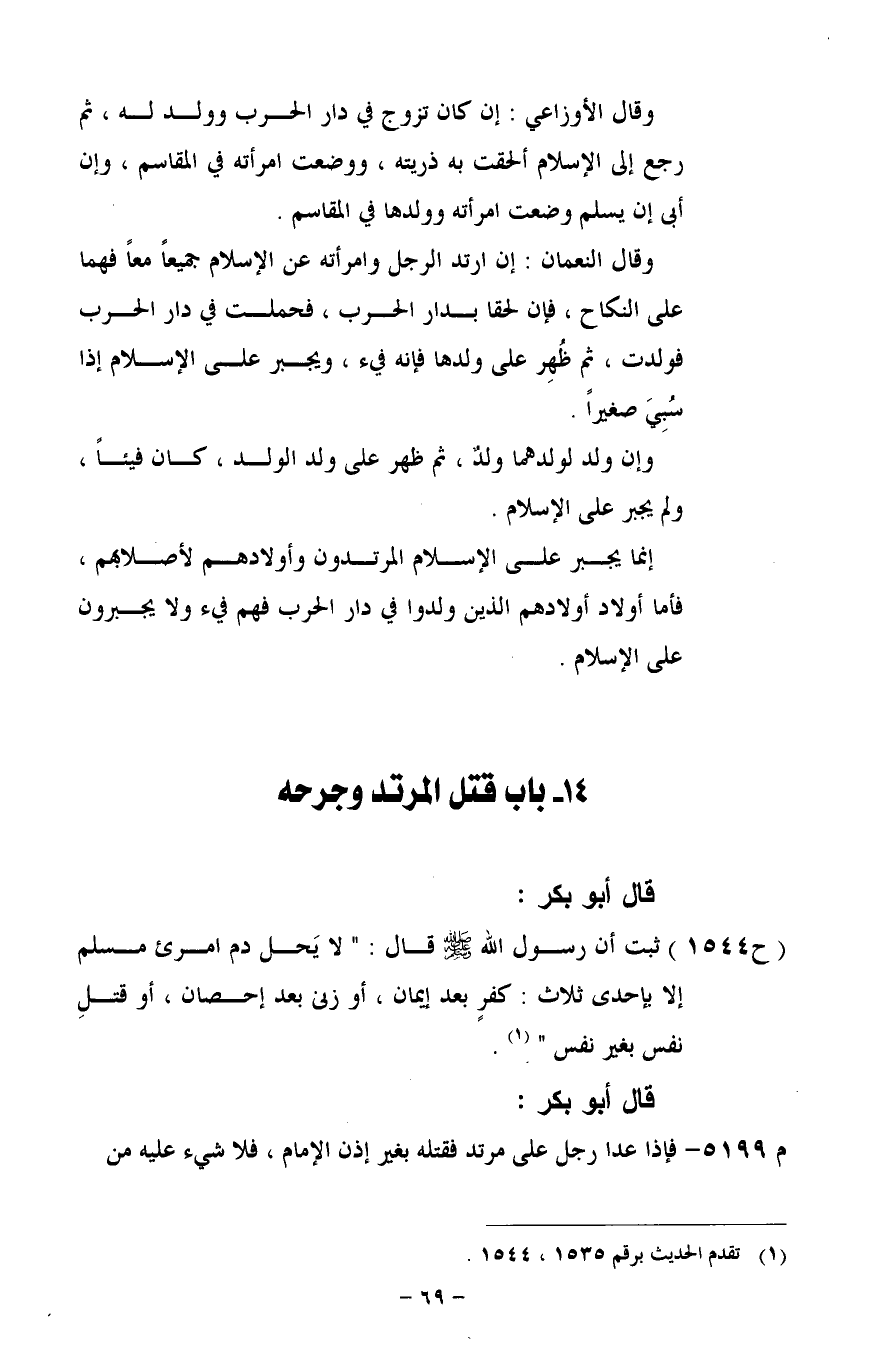 وقال الأوزاعي : إن كان تزوج في دار الحرب وولد له ، ثم
رجع إلى الإسلام ألحقت به ذريته ، ووضعت امرأته في المقاسم ، وإن
أبى إن يسلم وضعت امرأته وولدها في المقاسم .
وقال النعمان : إن ارتد الرجل وامرأته عن الإسلام جميعاً معاً فهما
على النكاح ، فإن لحقا بدار الحرب ، فحملت في دار الحرب
فولدت ، ثم ظُهِر على ولدها فإنه فيء ، ويجبر على الإسلام إذا
سُبِيَ صغيراً .
وإن ولد لولدهما ولدٌ ، ثم ظهر على ولد الولد ، كان فيئاً ،
ولم يجبر على الإسلام .
إنما يجبر على الإسلام المرتدون وأولادهم لأصلابهم ،
فأما أولاد أولادهم الذين ولدوا في دار الحرب فهم فيء ولا يجبرون
على الإسلام .
١٤ـ باب قتل المرتد وجرحه
قال أبو بكر :
( ح١٥٤٤ ) ثبت أن رسول الله ﷺ قال : " لا يَحل دم امرئ مسلم
إلا بإحدى ثلاث : كفرٍ بعد إيمان ، أو زنى بعد إحصان ، أو قتلِ
نفس بغير نفس " (١) .
قال أبو بكر :
م ٥١٩٩– فإذا عدا رجل على مرتد فقتله بغير إذن الإمام ، فلا شيء عليه من
(١) تقدم الحديث برقم ١٥٣٥ ، ١٥٤٤ .
– ٦٩ –